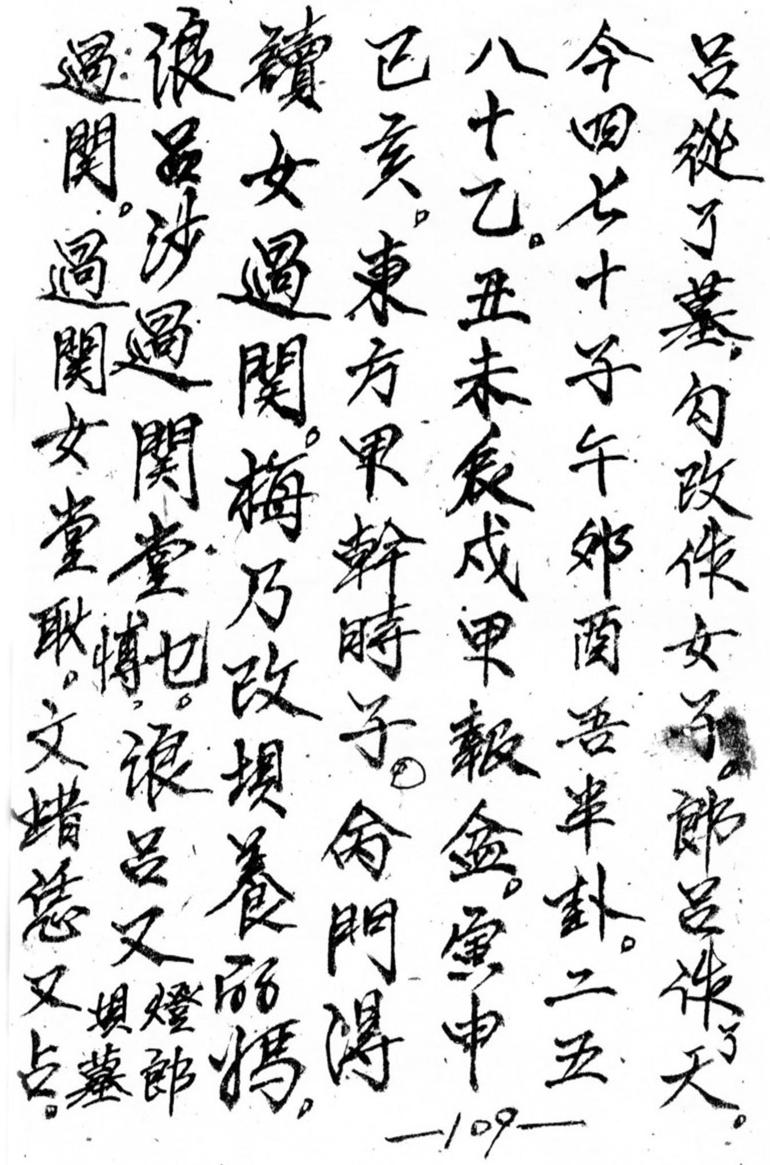 呂從了墓。勾改作女子。郎呂作了天。
今四七十子午卯酉吾半卦。二五
八十乙。丑未辰戍甲報盆。寅申
已亥。東方甲幹時子。
門得
讀女過関。梅乃改埧養 媽。
浪呂沙過関堂乜 愽。浪呂又燈郎埧墓
過関。過関女堂耿。文 又占。
—109—